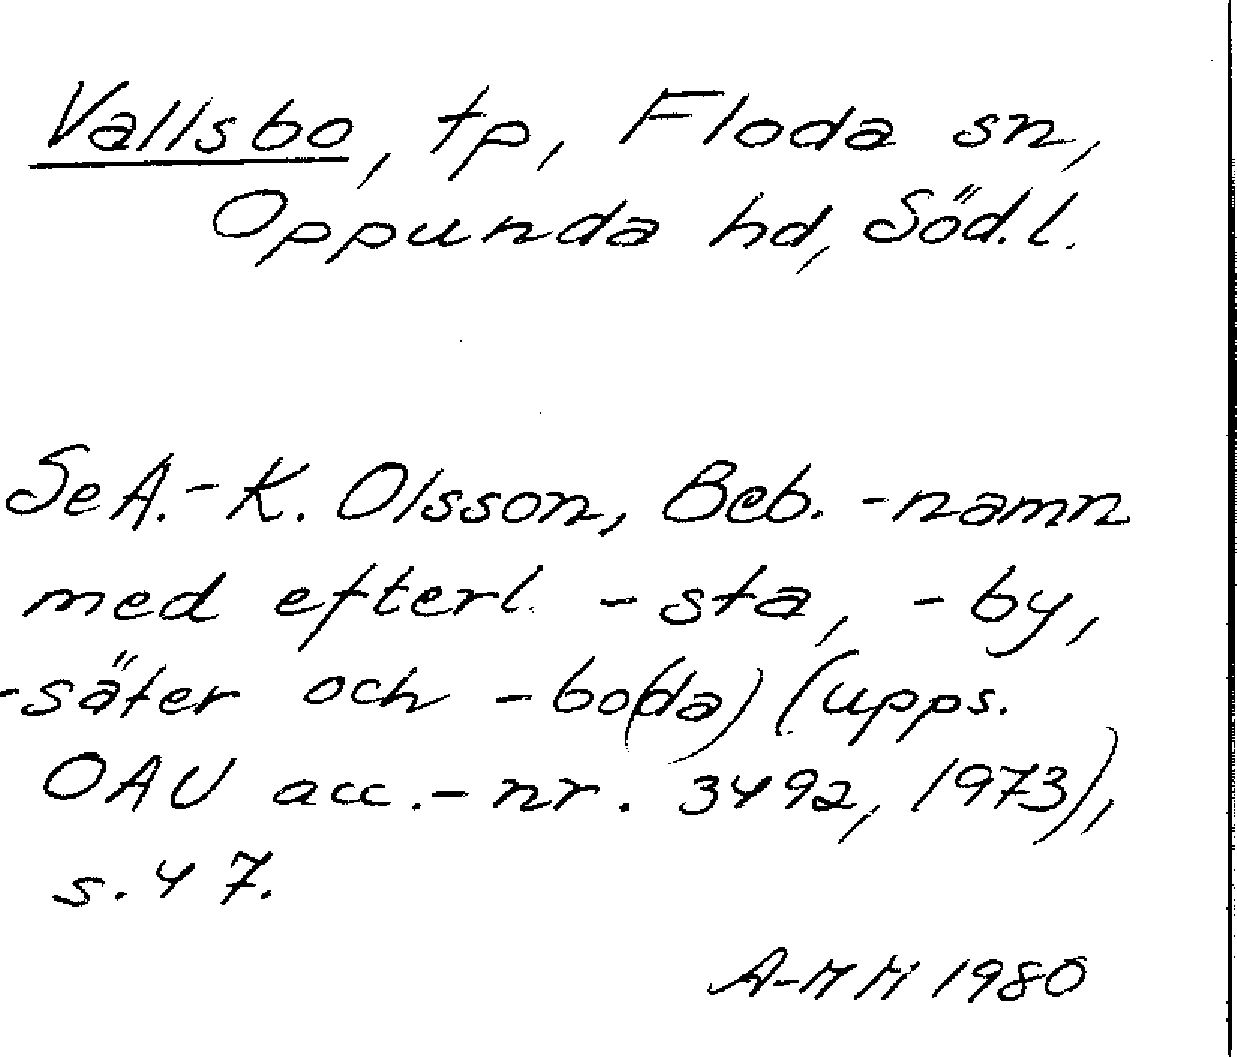 Vallsbo, tp, Floda sn,
Oppunda hd, Söd.l.
Se A.-K. Olsson, Beb.-namn
med efterl. -sta, -by,
-säter och -bo(da) (upps.
OAU acc.-nr. 3492, 1973),
s. 47.
A-MM 1980